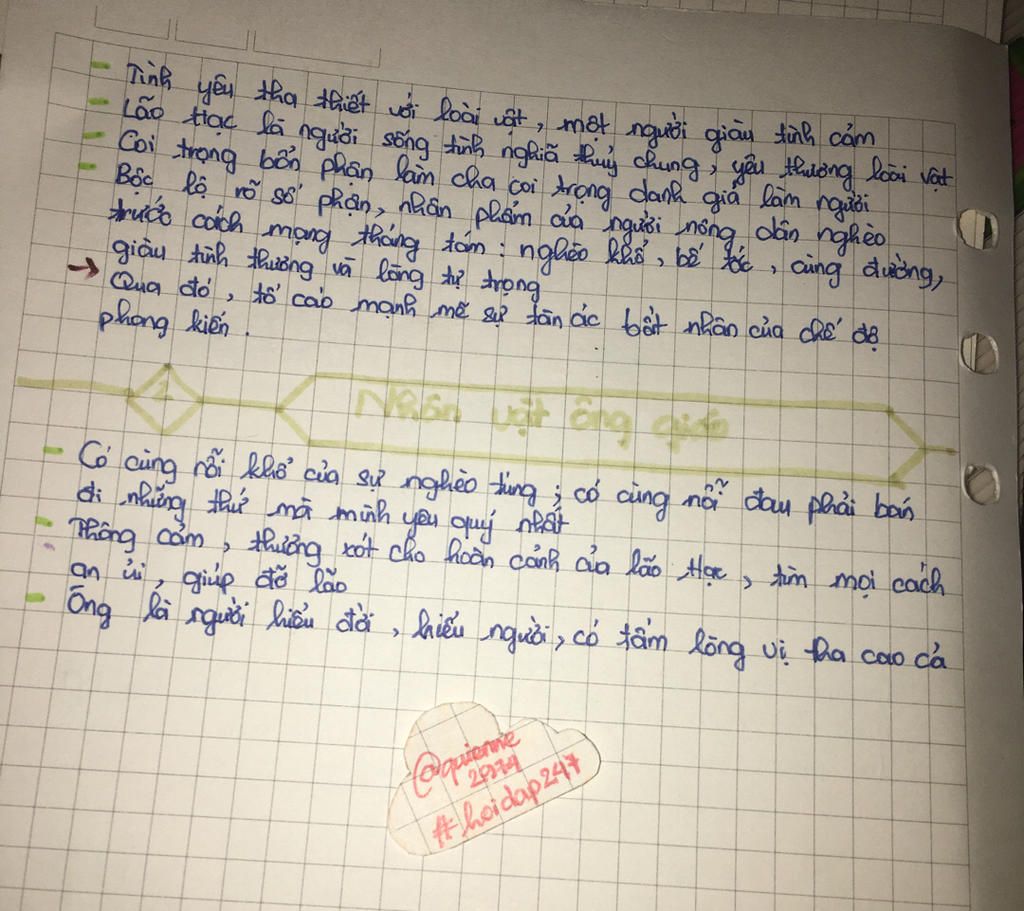 - Tình yêu tha thiết với loài vật, một người giàu tình cảm
- Lão Hạc là người sống tình nghiã thuỷ chung, yêu thương loài vật
- Coi trọng bổn phận làm cha coi trọng danh giá làm người
- Bộc lộ rõ số phận, nhân phẩm của người nông dân nghèo
trước cách mạng tháng tám: nghèo khổ, bế tắc, cùng đường,
giàu tình thương và lòng tự trọng
→ Qua đó, tố cáo mạnh mẽ sự tàn ác bất nhân của chế độ
phong kiến.
2 Nhân vật ông giáo
- Có cùng nỗi khổ của sự nghèo túng; có cùng nỗi đau phải bán
đi những thứ mà mình yêu quý nhất
- Thông cảm, thương xót cho hoàn cảnh của lão Hạc, tìm mọi cách
an ủi, giúp đỡ lão
- Ông là người hiểu đời, hiểu người, có tấm lòng vị tha cao cả
@quienne
2074
#hoidap247